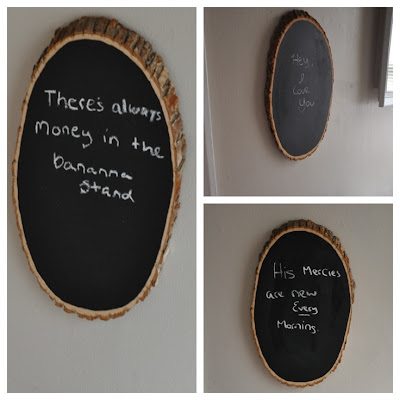 There's always
money in the
bananna
stand
Hey,
I
love
you
His Mercies
are new
Every
Morning.